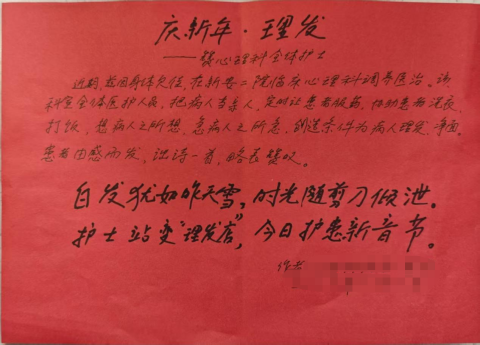 庆新年·理发
——赞心理科全体护士
近期,茲因身体欠佳,在新安二院临床心理科调养医治。该
科室全体医护人员,把病人当亲人,定期让患者服药,协助患者洗衣、
打饭,想病人之所想,急病人之所急,创造条件为病人理发、净面。
患者由感而发,沈诗一首,略表赞叹。
白发犹如昨天雪,时光随剪刀倾泄。
护士站变“理发店”,今日护患新音节。
作者